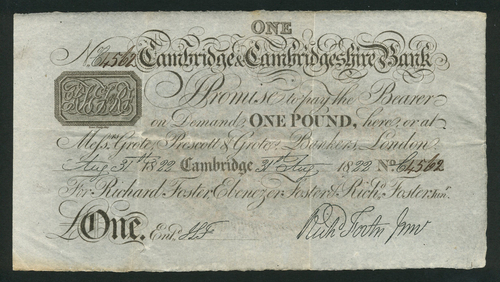 ONE
No. C4562 Cambridge & Cambridgeshire Bank
I Promise to pay the Bearer
on Demand, ONE POUND, here or at
Messrs Grote, Prescott & Grote, Bankers, London.
Augt 31st 1822 Cambridge 31st Augt 1822 No. C4562
For Richard Foster, Ebenezer Foster & Richd Foster Junr.
£One. Entd
Richd Foster Junr